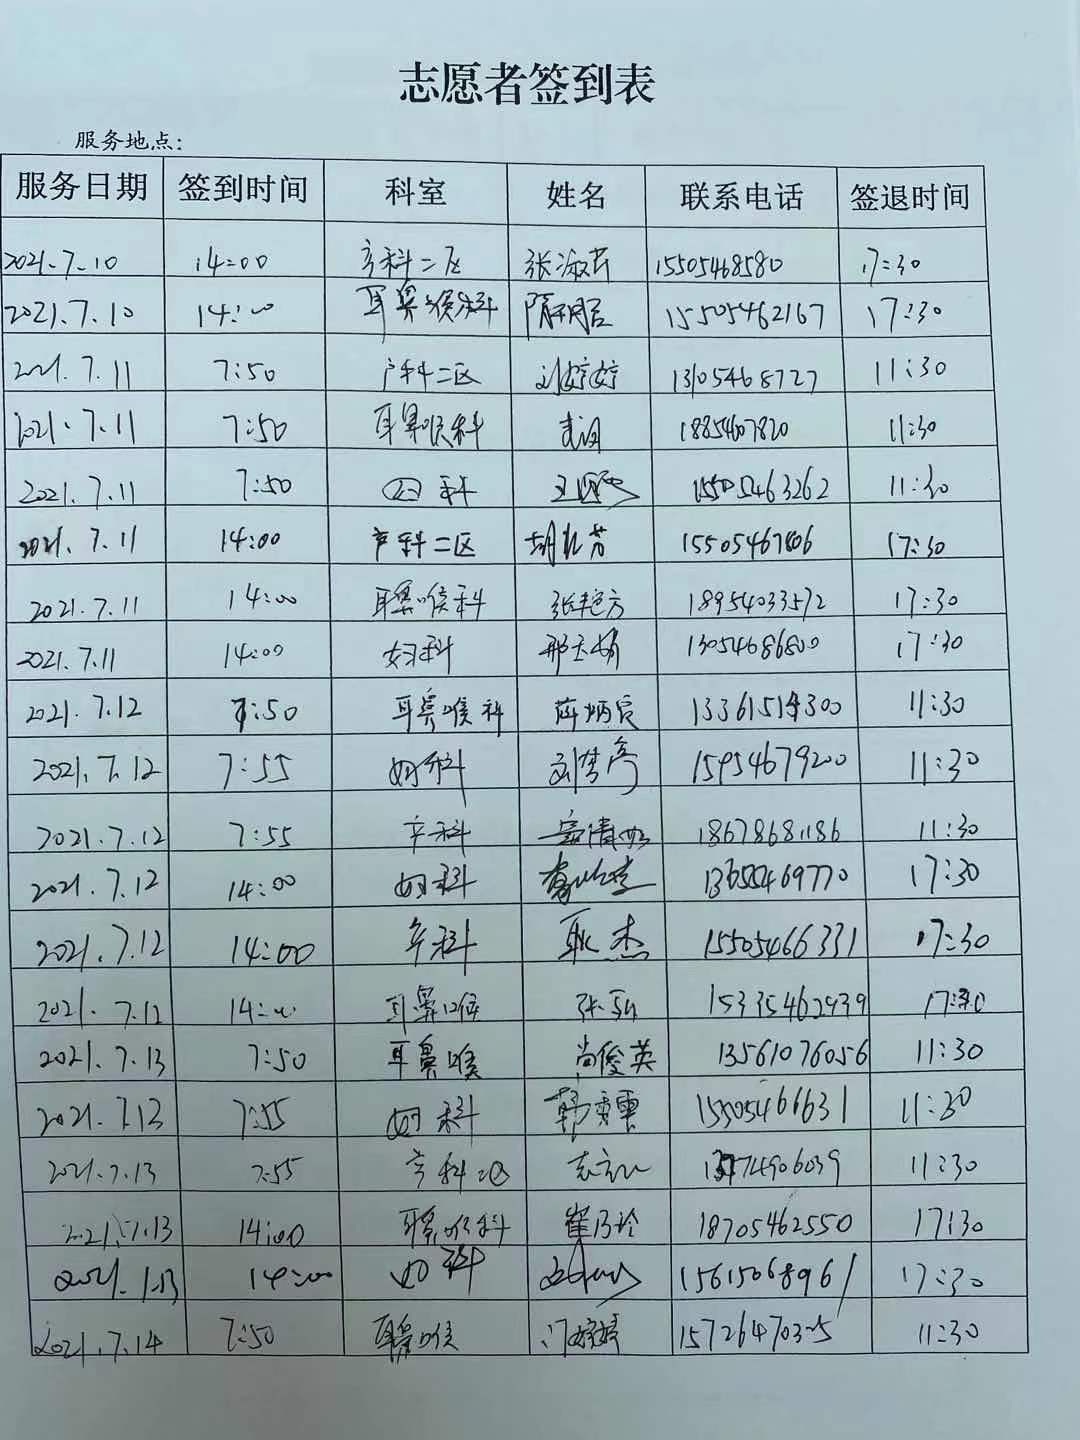 志愿者签到表
服务地点：
服务日期 签到时间 科室 姓名 联系电话 签退时间
2021.7.10 14:00 产科二区 张淑芹 15505468580 17:30
2021.7.10 14:00 耳鼻喉科 15505462167 17:30
2021.7.11 7:50 产科二区 刘婷婷 13105468727 11:30
2021.7.11 7:50 耳鼻喉科 1885407820 11:30
2021.7.11 7:50 科 15505463262 11:30
2021.7.11 14:00 产科二区 胡 芳 15505467806 17:30
2021.7.11 14:00 耳鼻喉科 张艳方 18954033572 17:30
2021.7.11 14:00 妇科 邢 娟 13054686800 17:30
2021.7.12 7:50 耳鼻喉科 薛炳辰 11:30
2021.7.12 7:55 妇科 刘梦 15954679200 11:30
2021.7.12 7:55 产科 清 18678681186 11:30
2021.7.12 14:00 妇科 17:30
2021.7.12 14:00 产科 耿杰 15505466331 17:30
2021.7.12 14:00 耳鼻喉 张 15335462939 17:30
2021.7.13 7:50 耳鼻喉 尚俊英 13561076056 11:30
2021.7.13 7:55 妇科 韩 15505466631 11:30
2021.7.13 7:55 产科二区 11:30
2021.7.13 14:00 耳鼻喉科 崔乃玲 18705462550 17:30
2021.7.13 14:00 妇科 15615068961 17:30
2021.7.14 7:50 耳鼻喉 门婷婷 15726470325 11:30